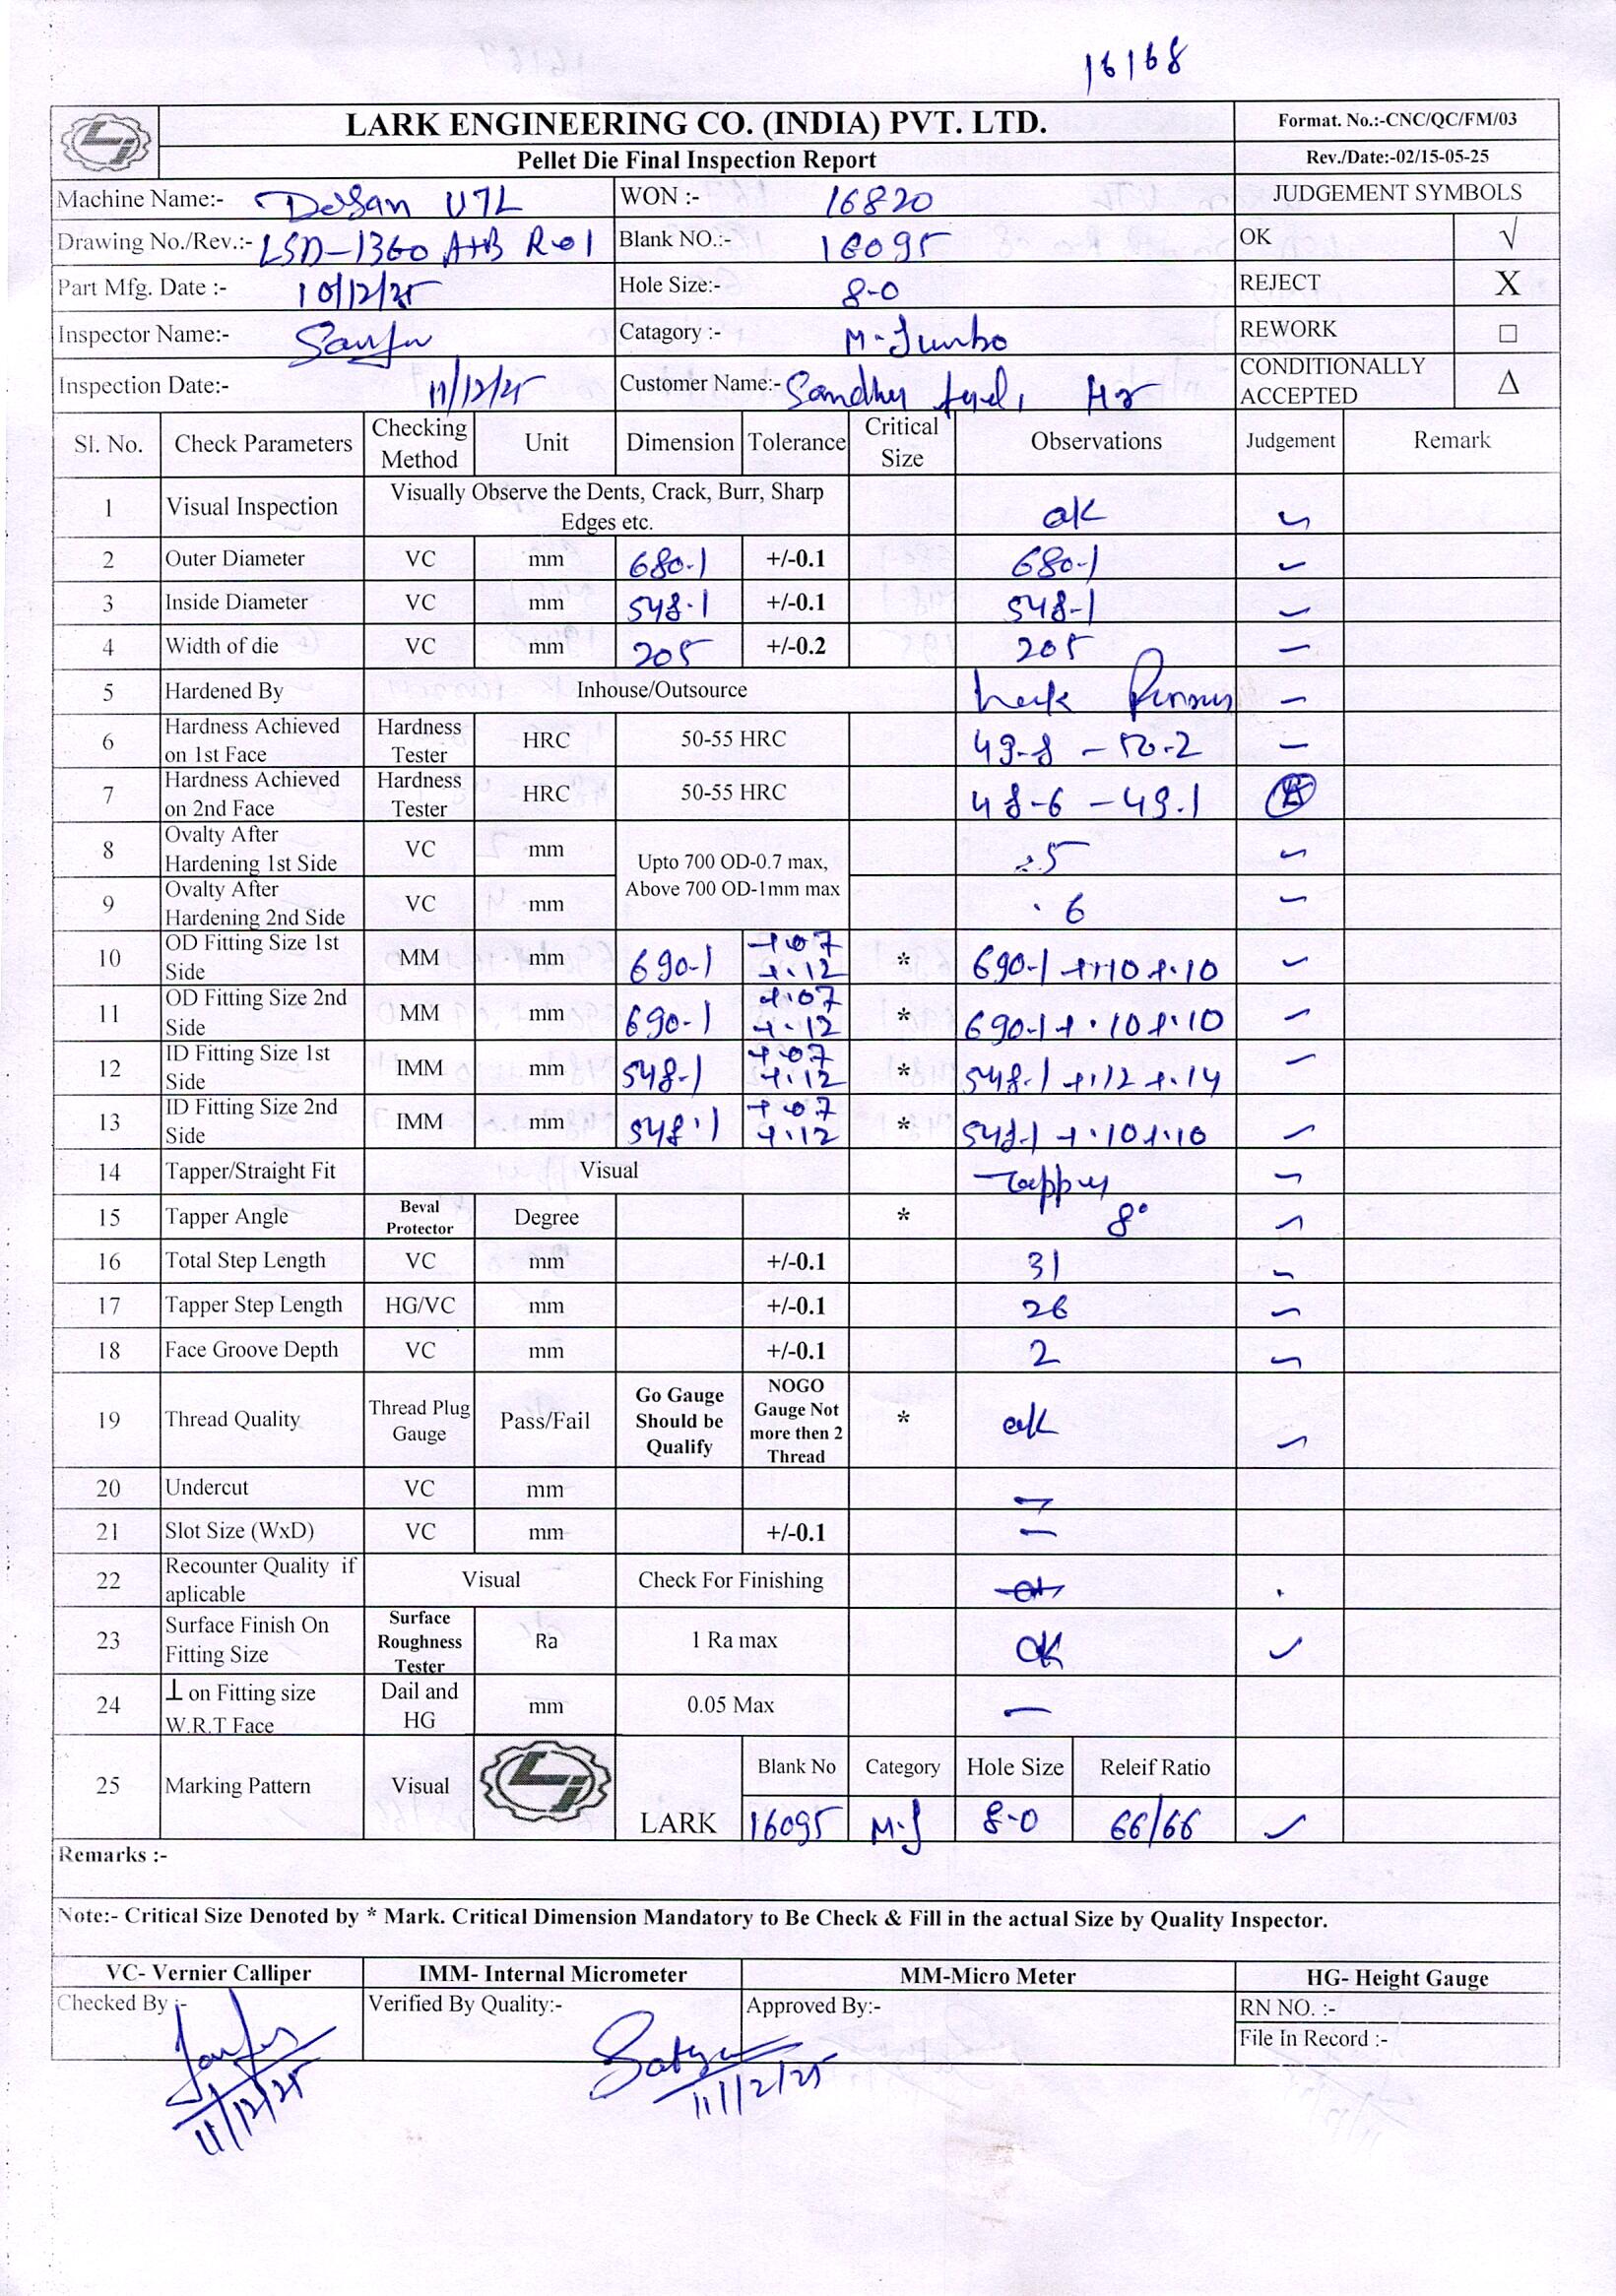 16168
LARK ENGINEERING CO. (INDIA) PVT. LTD.
Format. No.:-CNC/QC/FM/03
Pellet Die Final Inspection Report
Rev./Date:-02/15-05-25
Machine Name:- U7L WON :- 16820 JUDGEMENT SYMBOLS
Drawing No./Rev.:- LSD-1360 A+B R01 Blank NO.:- 16095 OK √
Part Mfg. Date :- 10/12/25 Hole Size:- 8-0 REJECT X
Inspector Name:- Catagory :- M-Jumbo REWORK □
Inspection Date:- 11/12/25 Customer Name:- CONDITIONALLY ACCEPTED Δ
Sl. No. Check Parameters Checking Method Unit Dimension Tolerance Critical Size Observations Judgement Remark
1 Visual Inspection Visually Observe the Dents, Crack, Burr, Sharp Edges etc. ok
2 Outer Diameter VC mm 680.1 +/-0.1 680-1
3 Inside Diameter VC mm 548.1 +/-0.1 548-1
4 Width of die VC mm 205 +/-0.2 205
5 Hardened By Inhouse/Outsource
6 Hardness Achieved on 1st Face Hardness Tester HRC 50-55 HRC 49-8 - 50-2
7 Hardness Achieved on 2nd Face Hardness Tester HRC 50-55 HRC 48-6 - 49.1
8 Ovalty After Hardening 1st Side VC mm Upto 700 OD-0.7 max, Above 700 OD-1mm max .5
9 Ovalty After Hardening 2nd Side VC mm .6
10 OD Fitting Size 1st Side MM mm 690-1 +.07 +.12 * 690-1 +.10 +.10
11 OD Fitting Size 2nd Side MM mm 690-1 +.07 +.12 * 690-1 +.10 +.10
12 ID Fitting Size 1st Side IMM mm 548-1 +.07 +.12 * 548-1 +.12 +.14
13 ID Fitting Size 2nd Side IMM mm 548.1 +.07 +.12 * 548-1 +.10 +.10
14 Tapper/Straight Fit Visual Tapper
15 Tapper Angle Beval Protector Degree * 8°
16 Total Step Length VC mm +/-0.1 31
17 Tapper Step Length HG/VC mm +/-0.1 26
18 Face Groove Depth VC mm +/-0.1 2
19 Thread Quality Thread Plug Gauge Pass/Fail Go Gauge Should be Qualify NOGO Gauge Not more then 2 Thread * ok
20 Undercut VC mm —
21 Slot Size (WxD) VC mm +/-0.1 —
22 Recounter Quality if aplicable Visual Check For Finishing
23 Surface Finish On Fitting Size Surface Roughness Tester Ra 1 Ra max OK
24 ⊥ on Fitting size W.R.T Face Dail and HG mm 0.05 Max —
25 Marking Pattern Visual LARK Blank No Category Hole Size Releif Ratio
16095 M.J 8-0 66/66
Remarks :-
Note:- Critical Size Denoted by * Mark. Critical Dimension Mandatory to Be Check & Fill in the actual Size by Quality Inspector.
VC- Vernier Calliper IMM- Internal Micrometer MM-Micro Meter HG- Height Gauge
Checked By :- Verified By Quality:- Approved By:- RN NO. :-
File In Record :-
11/12/25 11/12/25